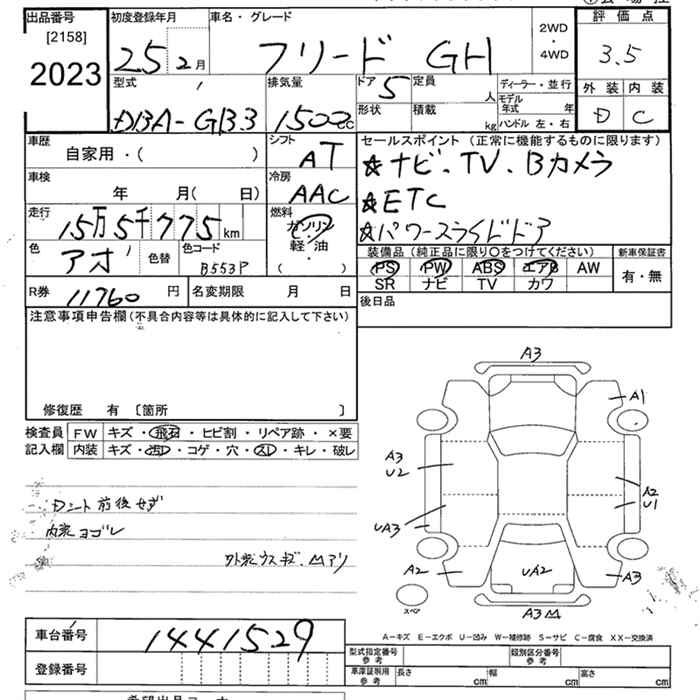 出品番号 初度登録年月 車名・グレード 2WD・4WD 評価点
[2158] 2023
25 2月 フリード GH 3.5
型式 排気量 ドア 5 定員 人 ディーラー・並行 外装 内装
DBA-GB3 1500cc 形状 積載 kg モデル年式 年 ハンドル 左・右 D C
車歴 シフト セールスポイント (正常に機能するものに限ります)
自家用・( ) AT ☆ナビ、TV、Bカメラ
車検 冷房 ☆ETC
年 月( 日) AAC ☆パワースライドドア
走行 燃料
15万5千775km ガソリン・軽・油 ( )
色 色替 色コード 装備品 (純正品に限り○をつけてください) 新車保証書
アオ B553P PS PW ABS エアB AW 有・無
SR ナビ TV カワ
R券 11760円 名変期限 月 日 後日品
注意事項申告欄 (不具合内容等は具体的に記入して下さい)
修復歴 有 〔箇所 〕
検査員 FW キズ・飛石・ヒビ割・リペア跡・×要
記入欄 内装 キズ・汚レ・コゲ・穴・スレ・キレ・破レ
Dニント 前後せず
内装 ヨゴレ
外装ウスキズ.凹アリ
A3
A1
A3
U2
A2
U1
UA3
A2 UA2 A3
スペア A3凹
A-キズ E-エクボ U-凹み W-補修跡 S-サビ C-腐食 XX-交換済
車台番号 1441529
型式指定番号 参考 類別区分番号 参考
登録番号 車庫証明用 参考 長さ cm 幅 cm 高さ cm